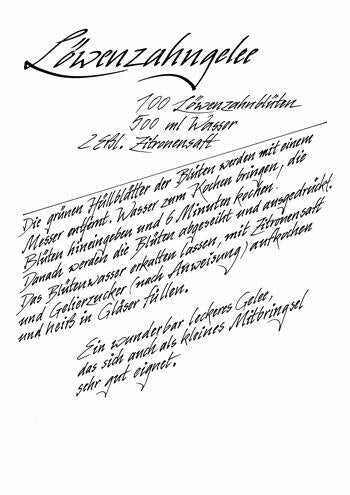 Löwenzahngelee
100 Löwenzahnblüten
500 ml Wasser
2 Eßl. Zitronensaft
Die grünen Hüllblätter der Blüten werden mit einem
Messer entfernt. Wasser zum Kochen bringen, die
Blüten hineingeben und 6 Minuten kochen.
Danach werden die Blüten abgeseiht und ausgedrückt.
Das Blütenwasser erkalten lassen, mit Zitronensaft
und Gelierzucker (nach Anweisung) aufkochen
und heiß in Gläser füllen.
Ein wunderbar leckeres Gelee,
das sich auch als kleines Mitbringsel
sehr gut eignet.